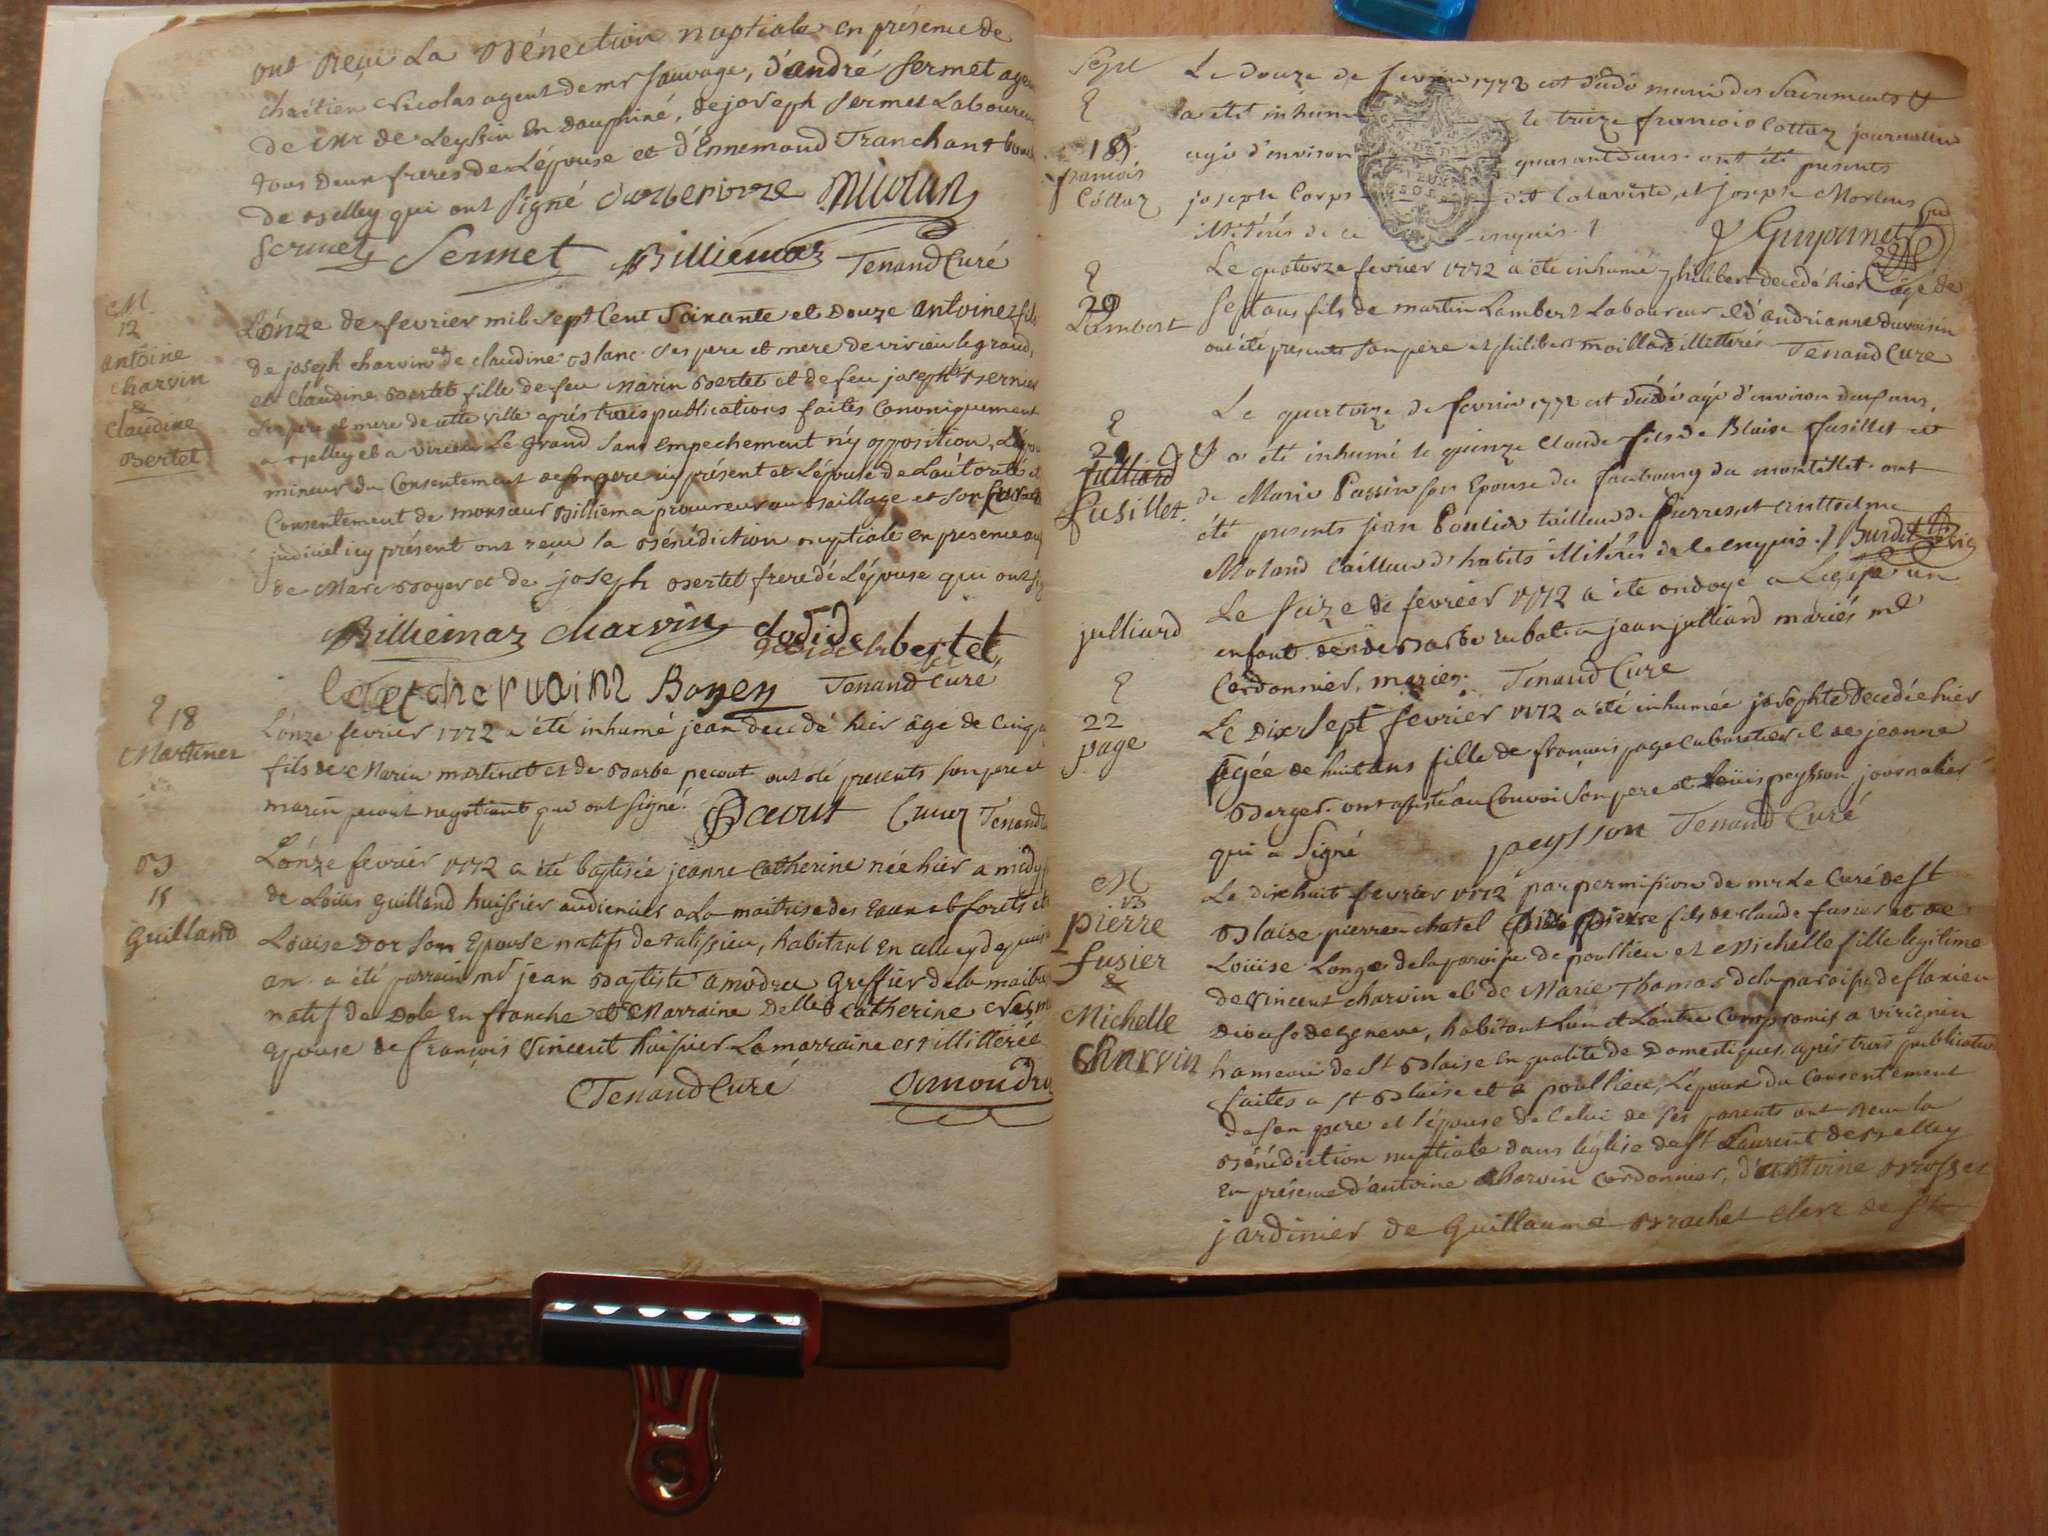 ont reçu La Bénection nuptiale en présence de
chrétien Nicolas agent de mr sauvage, d'andré sermet agen
de mr de Leyssin En Dauphiné, de joseph sermet Laboureur
tous deux freres de Lépouse et d'Ennemond Tranchant
de Belley qui ont signé Nicolas
Sermet Sermet Billiemaz Tenand Curé
M
12
antoine
charvin
&
claudine
Bertet
Lónze de fevrier mil sept Cent Soixante et Douze antoine fils
de joseph charvin et de claudine Blanc ses pere et mere de virieu le grand,
et Claudine Bertet fille de feu marin Bertet et de feu josephte
ses pere et mere de cette ville aprés trois publications faites Canoniquement
a Belley et a virieu Le grand sans empechement n'y opposition, Lépou
mineur du Consentement de son pere icy présent et Lépouse de Lautorité
Consentement de monsieur Billiema procureur au Bailliage et son
judiciel icy présent ont reçu la Bénédiction nuptiale en presence
de Marc Boyer et de joseph Bertet frere de Lépouse qui ont sig
Billiemaz charvin bertet
Boyer Tenand Curé
18
Martinet
Lónze fevrier 1772 a été inhumé jean decedé hier âgé de Cinq
fils de Marin martinet et de Barbe pecout ont été presents son pere et
marin pecout negotiant qui ont signé. Tenand
B
15
Guilland
Lónze fevrier 1772 a été baptisée jeanne Catherine née hier a midy
de Loüis guilland huissier audiencier a La maitrise des Eaux et forets et
Loüise Dor son Epouse natifs de talissieu, habitant En
an a été parrain mr jean Baptiste amodru Greffier de la
natif de Dole En franche et Marraine Delle Catherine
Epouse de françois Vincent huissier La marraine est illitérée
Tenand Curé amoudru
Sept
18
francois
Cottaz
Le douze de fevrier 1772 est décédé muni des Sacrements &
a été inhumé le treize francois Cottaz journallier
agé d'environ quarant'deux ans ont été présents
joseph Corps dit Lalaviste, et joseph
illitérés de ce enquis. Guyonnet
20
Lambert
Le quatorze fevrier 1772 a été inhumé philibert decedé hier âgé de
sept ans fils de martin Lambert Laboureur et d'andrianne duvoisin
ont été presents son pere et philibert moillard illitterés Tenand Curé
21
julliard
fusillet
Le quatorze de fevrier 1772 est décédé agé d'environ
& a été inhumé le quinze Claude fils de Blaise fusillet et
de Marie Passin son Epouse du faubourg du montillet ont
été presents jean tailleur de Pierres et
Moland tailleur d'habits illitérés de ce enquis. Burdet
julliard
Le seize de fevrier 1772 a été ondoyé a Leglise un
enfant né de Barbe rubat a jean julliard mariés
Cordonnier, mariez. Tenand Curé
22
page
Le Dix Sept fevrier 1772 a été inhumée josephte decedée hier
agée de huit ans fille de françois page Cabaretier et de jeanne
Berger. ont assisté au Convoi Son pere et Loüis peysson journalier
qui a Signé peysson Tenand Curé
M
13
pierre
fusier
&
Michelle
Charvin
Le dixhuit fevrier 1772 par permission de mr Le Curé de St
Blaise pierre chatel pierre fils de claude fusier et de
Loüise Longe de la paroisse de poullieu et Michelle fille legitime
de vincent charvin et de Marie Thomas de la paroisse de flaxieu
Diocese de geneve, habitant Lun et Lautre Compromis a virignin
hameau de St Blaise En qualité de Domestiques, aprés trois publications
faites a St Blaise et a poullieu, Lépoux du Consentement
de son pere et l'épouse de Celui de ses parents ont reçu la
Bénédiction nuptiale dans leglise de St Laurent de Belley
En présence d'antoine Charvin Cordonnier, d'antoine Brosset
jardinier de Guillaume Brachet clerc de St